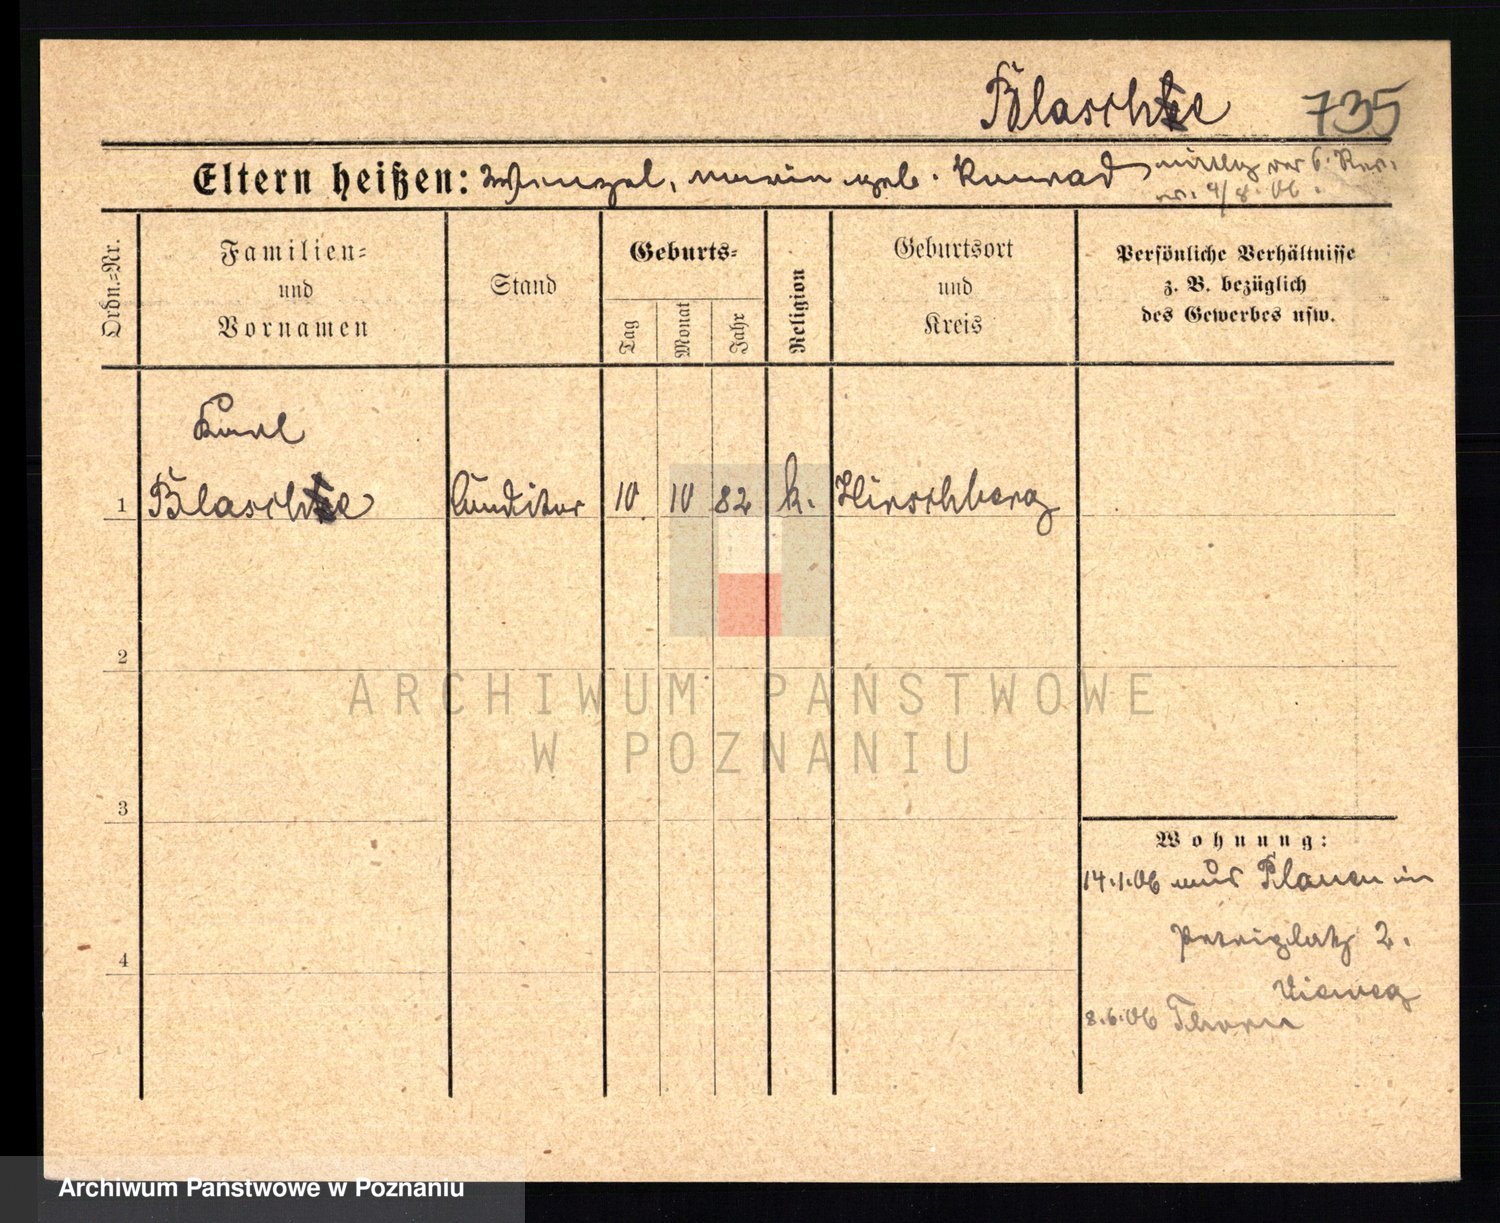 Blaschke 735
Eltern heißen: Wenzel, Maria geb. Konrad
4/8.06.
Ordn.=Nr.
Familien=
und
Vornamen
Stand
Geburts=
Tag
Monat
Jahr
Religion
Geburtsort
und
Kreis
Persönliche Verhältnisse
z. B. bezüglich
des Gewerbes usw.
Karl
1 Blaschke Conditor 10 10 82 k. Hirschberg
2
3
4
Wohnung:
14.1.06 aus Plauen in
Petriplatz 2.
Vieweg
8.6.06 Thorn
ARCHIWUM PAŃSTWOWE
W POZNANIU
Archiwum Państwowe w Poznaniu